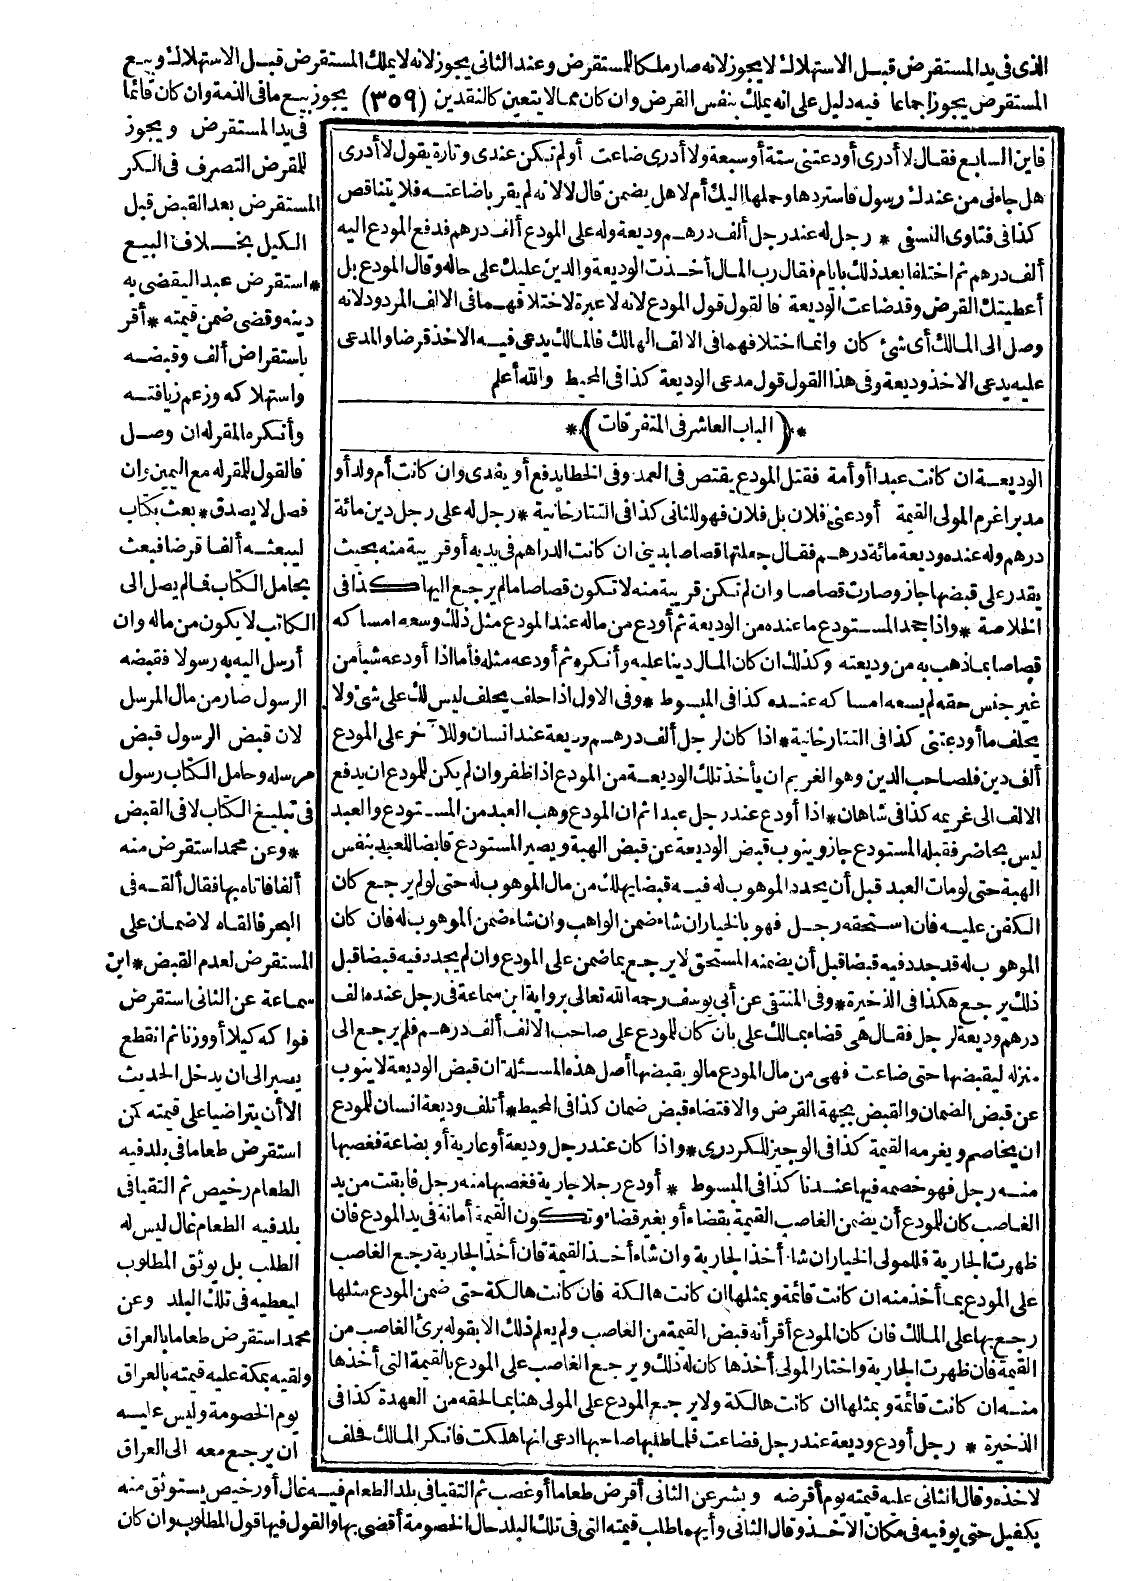 الذى فى يد المستقرض قبل الاستهلاك لا يجوز لانه صار ملكا للمستقرض وعند الثانى يجوز لانه لا يملك المستقرض قبل الاستهلاك وبيع
المستقرض يجوز اجماعا فيه دليل على انه يملك بنفس القرض وان كان مما لا يتعين كالنقدين (٣٥٩) يجوز بيع ما فى الذمة وان كان قائما
فى يد المستقرض ويجوز
للمقرض التصرف فى الكر
المستقرض بعد القبض قبل
الكيل بخلاف البيع
* استقرض عبد اليقضى به
دينه وقضى ضمن قيمته * أقر
باستقراض ألف وقبضه
واستهلاكه وزعم زيافته
وأنكره المقرله ان وصل
فالقول للمقرله مع اليمين وان
فصل لا يصدق * بعث بكتاب
ليبعث ألفا قرضا فبعث
بحامل الكتاب فما لم يصل الى
الكاتب لا يكون من ماله وان
أرسل اليه به رسولا فقبضه
الرسول صار من مال المرسل
لان قبض الرسول قبض
مرسله وحامل الكتاب رسول
فى تبليغ الكتاب لا فى القبض
* وعن محمد استقرض منه
ألفا فاتاه بها فقال ألقه فى
البحر فالقاه لا ضمان على
المستقرض لعدم القبض * ابن
سماعة عن الثانى استقرض
فوا كه كيلا أو وزنا ثم انقطع
يصبر الى ان يدخل الحديث
الا أن يتراضيا على قيمته كمن
استقرض طعاما فى بلد فيه
الطعام رخيص ثم التقيا فى
بلد فيه الطعام غال ليس له
الطلب بل يوثق المطلوب
ليعطيه فى تلك البلد وعن
محمد استقرض طعاما بالعراق
ولقيه بمكة عليه قيمته بالعراق
يوم الخصومة وليس عليه
ان يرجع معه الى العراق
فاين السابع فقال لا أدرى أودعتنى ستة أو سبعة ولا أدرى ضاعت أو لم تكن عندى وتارة يقول لا أدرى
هل جاءنى من عندك رسول فاستردها وحملها اليك أم لا هل يضمن قال لا لانه لم يقر باضاعته فلا يتناقض
كذا فى فتاوى النسفى * رجل له عند رجل ألف درهم وديعة وله على المودع ألف درهم فدفع المودع اليه
ألف درهم ثم اختلفا بعد ذلك بايام فقال رب المال أخذت الوديعة والدين عليك على حاله وقال المودع بل
أعطيتك القرض وقد ضاعت الوديعة فالقول قول المودع لانه لا عبرة لاختلافهما فى الالف المردود لانه
وصل الى المالك أى شئ كان وانما اختلافهما فى الالف الهالك فالمالك يدعى فيه الاخذ قرضا والمدعى
عليه يدعى الاخذ وديعة وفى هذا القول قول مدعى الوديعة كذا فى المحيط والله أعلم
* (الباب العاشر فى المتفرقات) *
الوديعة ان كانت عبدا أو أمة فقتل المودع يقتص فى العمد وفى الخطا يدفع أو يفدى وان كانت أم ولد أو
مدبرا غرم المولى القيمة أودعنى فلان بل فلان فهو للثانى كذا فى التتارخانية * رجل له على رجل دين مائة
درهم وله عنده وديعة مائة درهم فقال جعلتها قصاصا بدينى ان كانت الدراهم فى يديه أو قريبة منه بحيث
يقدر على قبضها جاز وصارت قصاصا وان لم تكن قريبة منه لا تكون قصاصا ما لم يرجع اليها كذا فى
الخلاصة * واذا جحد المستودع ما عنده من الوديعة ثم أودع من ماله عند المودع مثل ذلك وسعه امساكه
قصاصا بما ذهب به من وديعته وكذلك ان كان المال دينا عليه وأنكره ثم أودعه مثله فأما اذا أودعه شيأ من
غير جنس حقه لم يسعه امساكه عنده كذا فى المبسوط * وفى الاول اذا حلف يحلف ليس لك على شئ ولا
يحلف ما أودعتنى كذا فى التتارخانية * اذا كان لرجل ألف درهم وديعة عند انسان وللآخر على المودع
ألف دين فلصاحب الدين وهو الغريم ان يأخذ تلك الوديعة من المودع اذا ظفر وان لم يكن للمودع ان يدفع
الالف الى غريمه كذا فى شاهان * اذا أودع عند رجل عبدا ثم ان المودع وهب العبد من المستودع والعبد
ليس بحاضر فقبله المستودع جاز وينوب قبض الوديعة عن قبض الهبة ويصير المستودع قابضا للعبد بنفس
الهبة حتى لو مات العبد قبل أن يجدد الموهوب له فيه قبضا يهلك من مال الموهوب له حتى لو لم يرجع كان
الكفن عليه فان استحقه رجل فهو بالخيار ان شاء ضمن الواهب وان شاء ضمن الموهوب له فان كان
الموهوب له قد جدد فيه قبضا قبل أن يضمنه المستحق لا يرجع بما ضمن على المودع وان لم يجدد فيه قبضا قبل
ذلك يرجع هكذا فى الذخيرة * وفى المنتقى عن أبى يوسف رحمه الله تعالى برواية ابن سماعة فى رجل عنده ألف
درهم وديعة لرجل فقال هى قضاء بمالك على بان كان للمودع على صاحب الالف ألف درهم فلم يرجع الى
منزله ليقبضها حتى ضاعت فهى من مال المودع ما لو يقبضها أصل هذه المسئلة ان قبض الوديعة لا ينوب
عن قبض الضمان والقبض بجهة القرض والاقتضاء قبض ضمان كذا فى المحيط * أتلف وديعة انسان للمودع
ان يخاصم ويغرمه القيمة كذا فى الوجيز للكردرى * واذا كان عند رجل وديعة أو عارية أو بضاعة فغصبها
منه رجل فهو خصمه فيها عندنا كذا فى المبسوط * أودع رجلا جارية فغصبها منه رجل فابقت من يد
الغاصب كان للمودع أن يضمن الغاصب القيمة بقضاء أو بغير قضاء وتكون القيمة أمانة فى يد المودع فان
ظهرت الجارية فللمولى الخيار ان شاء أخذ الجارية وان شاء أخذ القيمة فان أخذ الجارية رجع الغاصب
على المودع بما أخذ منه ان كانت قائمة وبمثلها ان كانت هالكة فان كانت هالكة حتى ضمن المودع مثلها
رجع بها على المالك فان كان المودع أقر أنه قبض القيمة من الغاصب ولم يعلم ذلك الا بقوله برئ الغاصب من
القيمة فان ظهرت الجارية واختار المولى أخذها كان له ذلك ويرجع الغاصب على المودع بالقيمة التى أخذها
منه ان كانت قائمة وبمثلها ان كانت هالكة ولا يرجع المودع على المولى هنا بما لحقه من العهدة كذا فى
الذخيرة * رجل أودع وديعة عند رجل فضاعت فلما طلبها صاحبها ادعى انها هلكت فانكر المالك فحلف
لاخذه وقال الثانى عليه قيمته يوم أقرضه وبشر عن الثانى أقرض طعاما أو غصب ثم التقيا فى بلد الطعام فيه غال أو رخيص يستوثق منه
بكفيل حتى يوفيه فى مكان الاخذ وقال الثانى وأيهما طلب قيمته التى فى تلك البلد حال الخصومة أقضى بها والقول فيها قول المطلوب وان كان